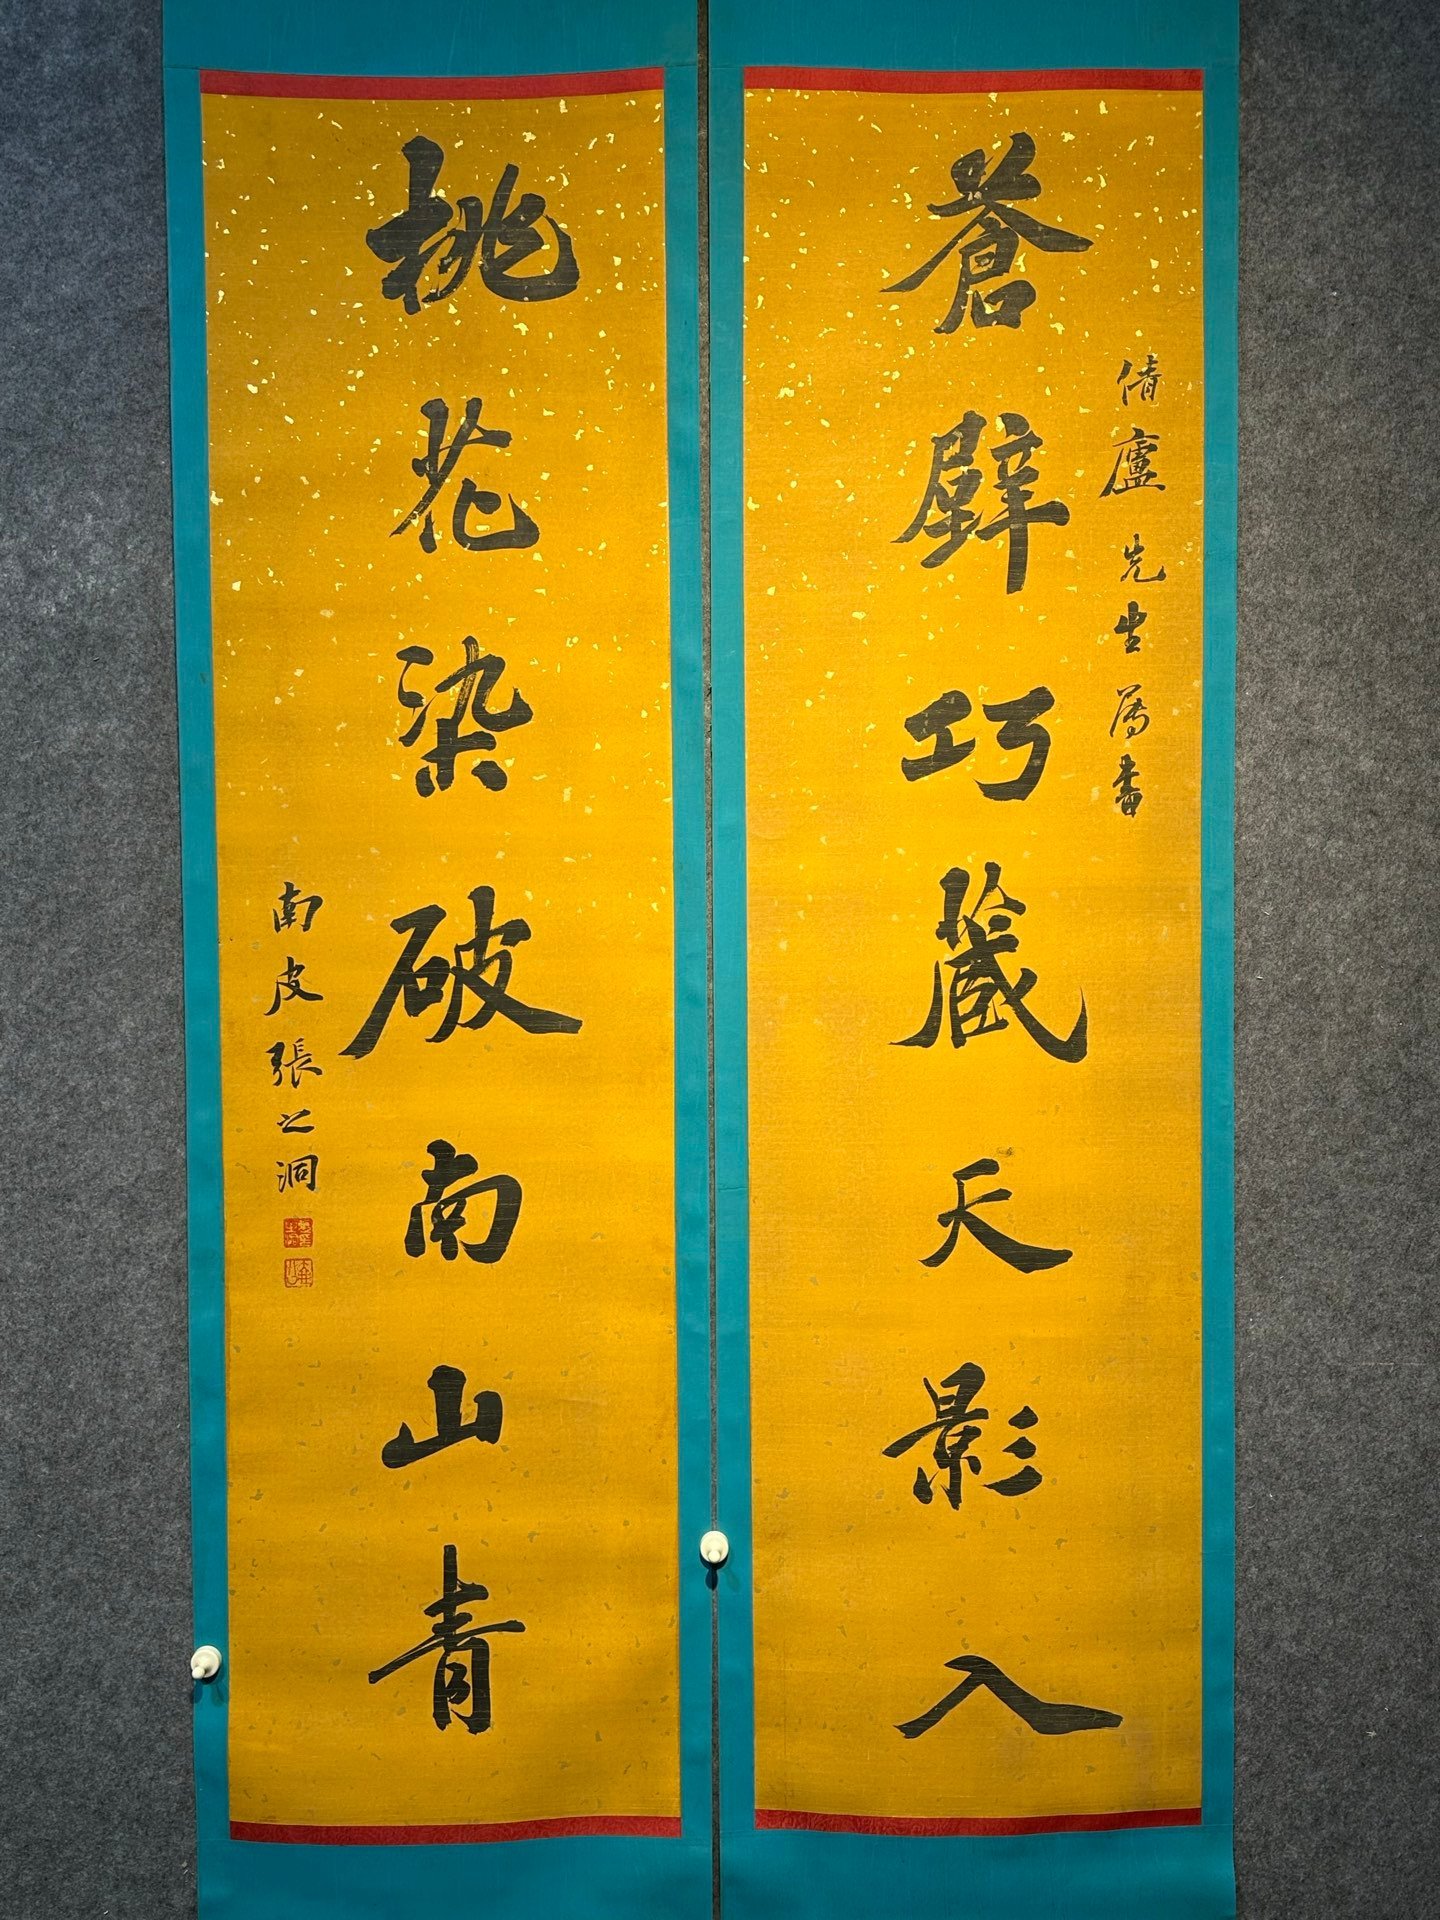 蒼壁巧藏天影入
倩廬先生屬書
桃花染破南山青
南皮張之洞